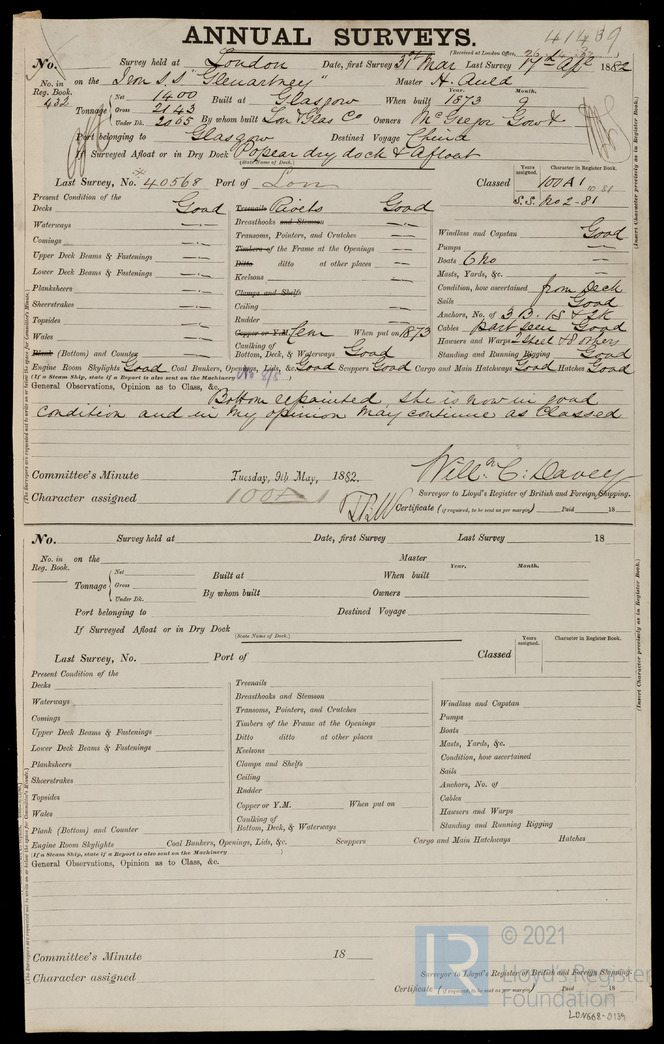 ANNUAL SURVEYS.
41439
(Received at London Office,
No. Survey held at London Date, first Survey 31st Mar Last Survey 17th Apl 1882
No. in Reg. Book. on the Iron S.S "Glenartney" Master A. Auld
432
Tonnage Net 1400 Built at Glasgow When built Year. 1873 Month. 9
Gross 2143
Under Dk. 2005 By whom built Lon & Glas Co Owners McGregor Gow &
Port belonging to Glasgow Destined Voyage China
If Surveyed Afloat or in Dry Dock Poplar dry dock & Afloat
(State Name of Dock.)
Years assigned. Character in Register Book.
Last Survey, No. 40568 Port of Lon Classed 100A1 10.81
S.S. No 2-81
(Insert Character precisely as in Register Book.)
Present Condition of the
Decks Good
Waterways
Comings
Upper Deck Beams & Fastenings
Lower Deck Beams & Fastenings
Planksheers
Sheerstrakes
Topsides
Wales
Plank (Bottom) and Counter
Treenails Rivets Good
Breasthooks and Stemson
Transoms, Pointers, and Crutches
Timbers of the Frame at the Openings
Ditto ditto at other places
Keelsons
Clamps and Shelfs
Ceiling
Rudder
Copper or Y.M. Cem When put on 1873
Caulking of
Bottom, Deck, & Waterways Good
Windlass and Capstan Good
Pumps
Boats 6 No
Masts, Yards, &c.
Condition, how ascertained from Deck
Sails Good
Anchors, No. of 3 B. 1S & 2K
Cables part seen Good
Hawsers and Warps 2 Steel & 8 others
Standing and Running Rigging Good
Engine Room Skylights Good Coal Bunkers, Openings, Lids, &c. Good Scuppers Good Cargo and Main Hatchways Good Hatches Good
(If a Steam Ship, state if a Report is also sent on the Machinery No 8/5)
General Observations, Opinion as to Class, &c.
Bottom repainted, She is now in good
condition and in my opinion may continue as Classed
Committee's Minute Tuesday, 9th May, 1882.
Will.m C. Davey
Character assigned 100A1
Surveyor to Lloyd's Register of British and Foreign Shipping.
Certificate (if required, to be sent as per margin) Paid 18
No. Survey held at Date, first Survey Last Survey 18
No. in Reg. Book. on the Master
Tonnage Net Built at When built Year. Month.
Gross
Under Dk. By whom built Owners
Port belonging to Destined Voyage
If Surveyed Afloat or in Dry Dock
(State Name of Dock.)
Years assigned. Character in Register Book.
Last Survey, No. Port of Classed
(Insert Character precisely as in Register Book.)
Present Condition of the
Decks
Waterways
Comings
Upper Deck Beams & Fastenings
Lower Deck Beams & Fastenings
Planksheers
Sheerstrakes
Topsides
Wales
Plank (Bottom) and Counter
Treenails
Breasthooks and Stemson
Transoms, Pointers, and Crutches
Timbers of the Frame at the Openings
Ditto ditto at other places
Keelsons
Clamps and Shelfs
Ceiling
Rudder
Copper or Y.M. When put on
Caulking of
Bottom, Deck, & Waterways
Windlass and Capstan
Pumps
Boats
Masts, Yards, &c.
Condition, how ascertained
Sails
Anchors, No. of
Cables
Hawsers and Warps
Standing and Running Rigging
Engine Room Skylights Coal Bunkers, Openings, Lids, &c. Scuppers Cargo and Main Hatchways Hatches
(If a Steam Ship, state if a Report is also sent on the Machinery )
General Observations, Opinion as to Class, &c.
Committee's Minute 18
Character assigned
Surveyor to Lloyd's Register of British and Foreign Shipping.
Certificate (if required, to be sent as per margin) Paid 18
LR © 2021
Lloyd's Register
Foundation
LON668-0139